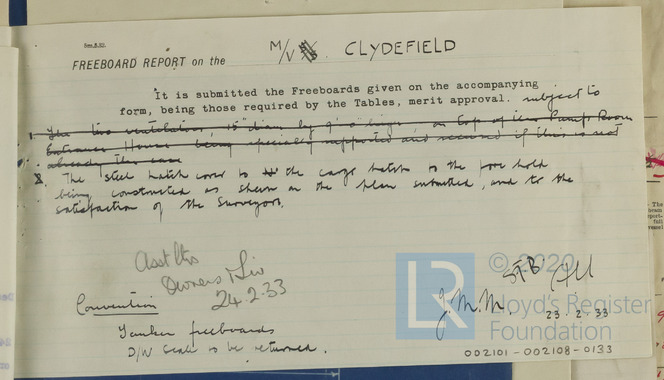 FREEBOARD REPORT on the M/V CLYDEFIELD
It is submitted the Freeboards given on the accompanying
form, being those required by the Tables, merit approval. subject to
The two ventilators, 15" diam by 9' o high, on top of the Pump Room
Entrance House being specially supported and secured if this is not
already the case
The steel hatch cover to the cargo hatch to the fore hold
being constructed as shewn on the plan submitted, and to the
satisfaction of the Surveyors.
Asst Hrs
Owners & Liv
24.2.33
STB
J.M.M.
23.2.33
Convention
Tanker freeboards
D/W scale to be returned.
© 2020
LR
Lloyd's Register
Foundation
002101-002108-0133
The